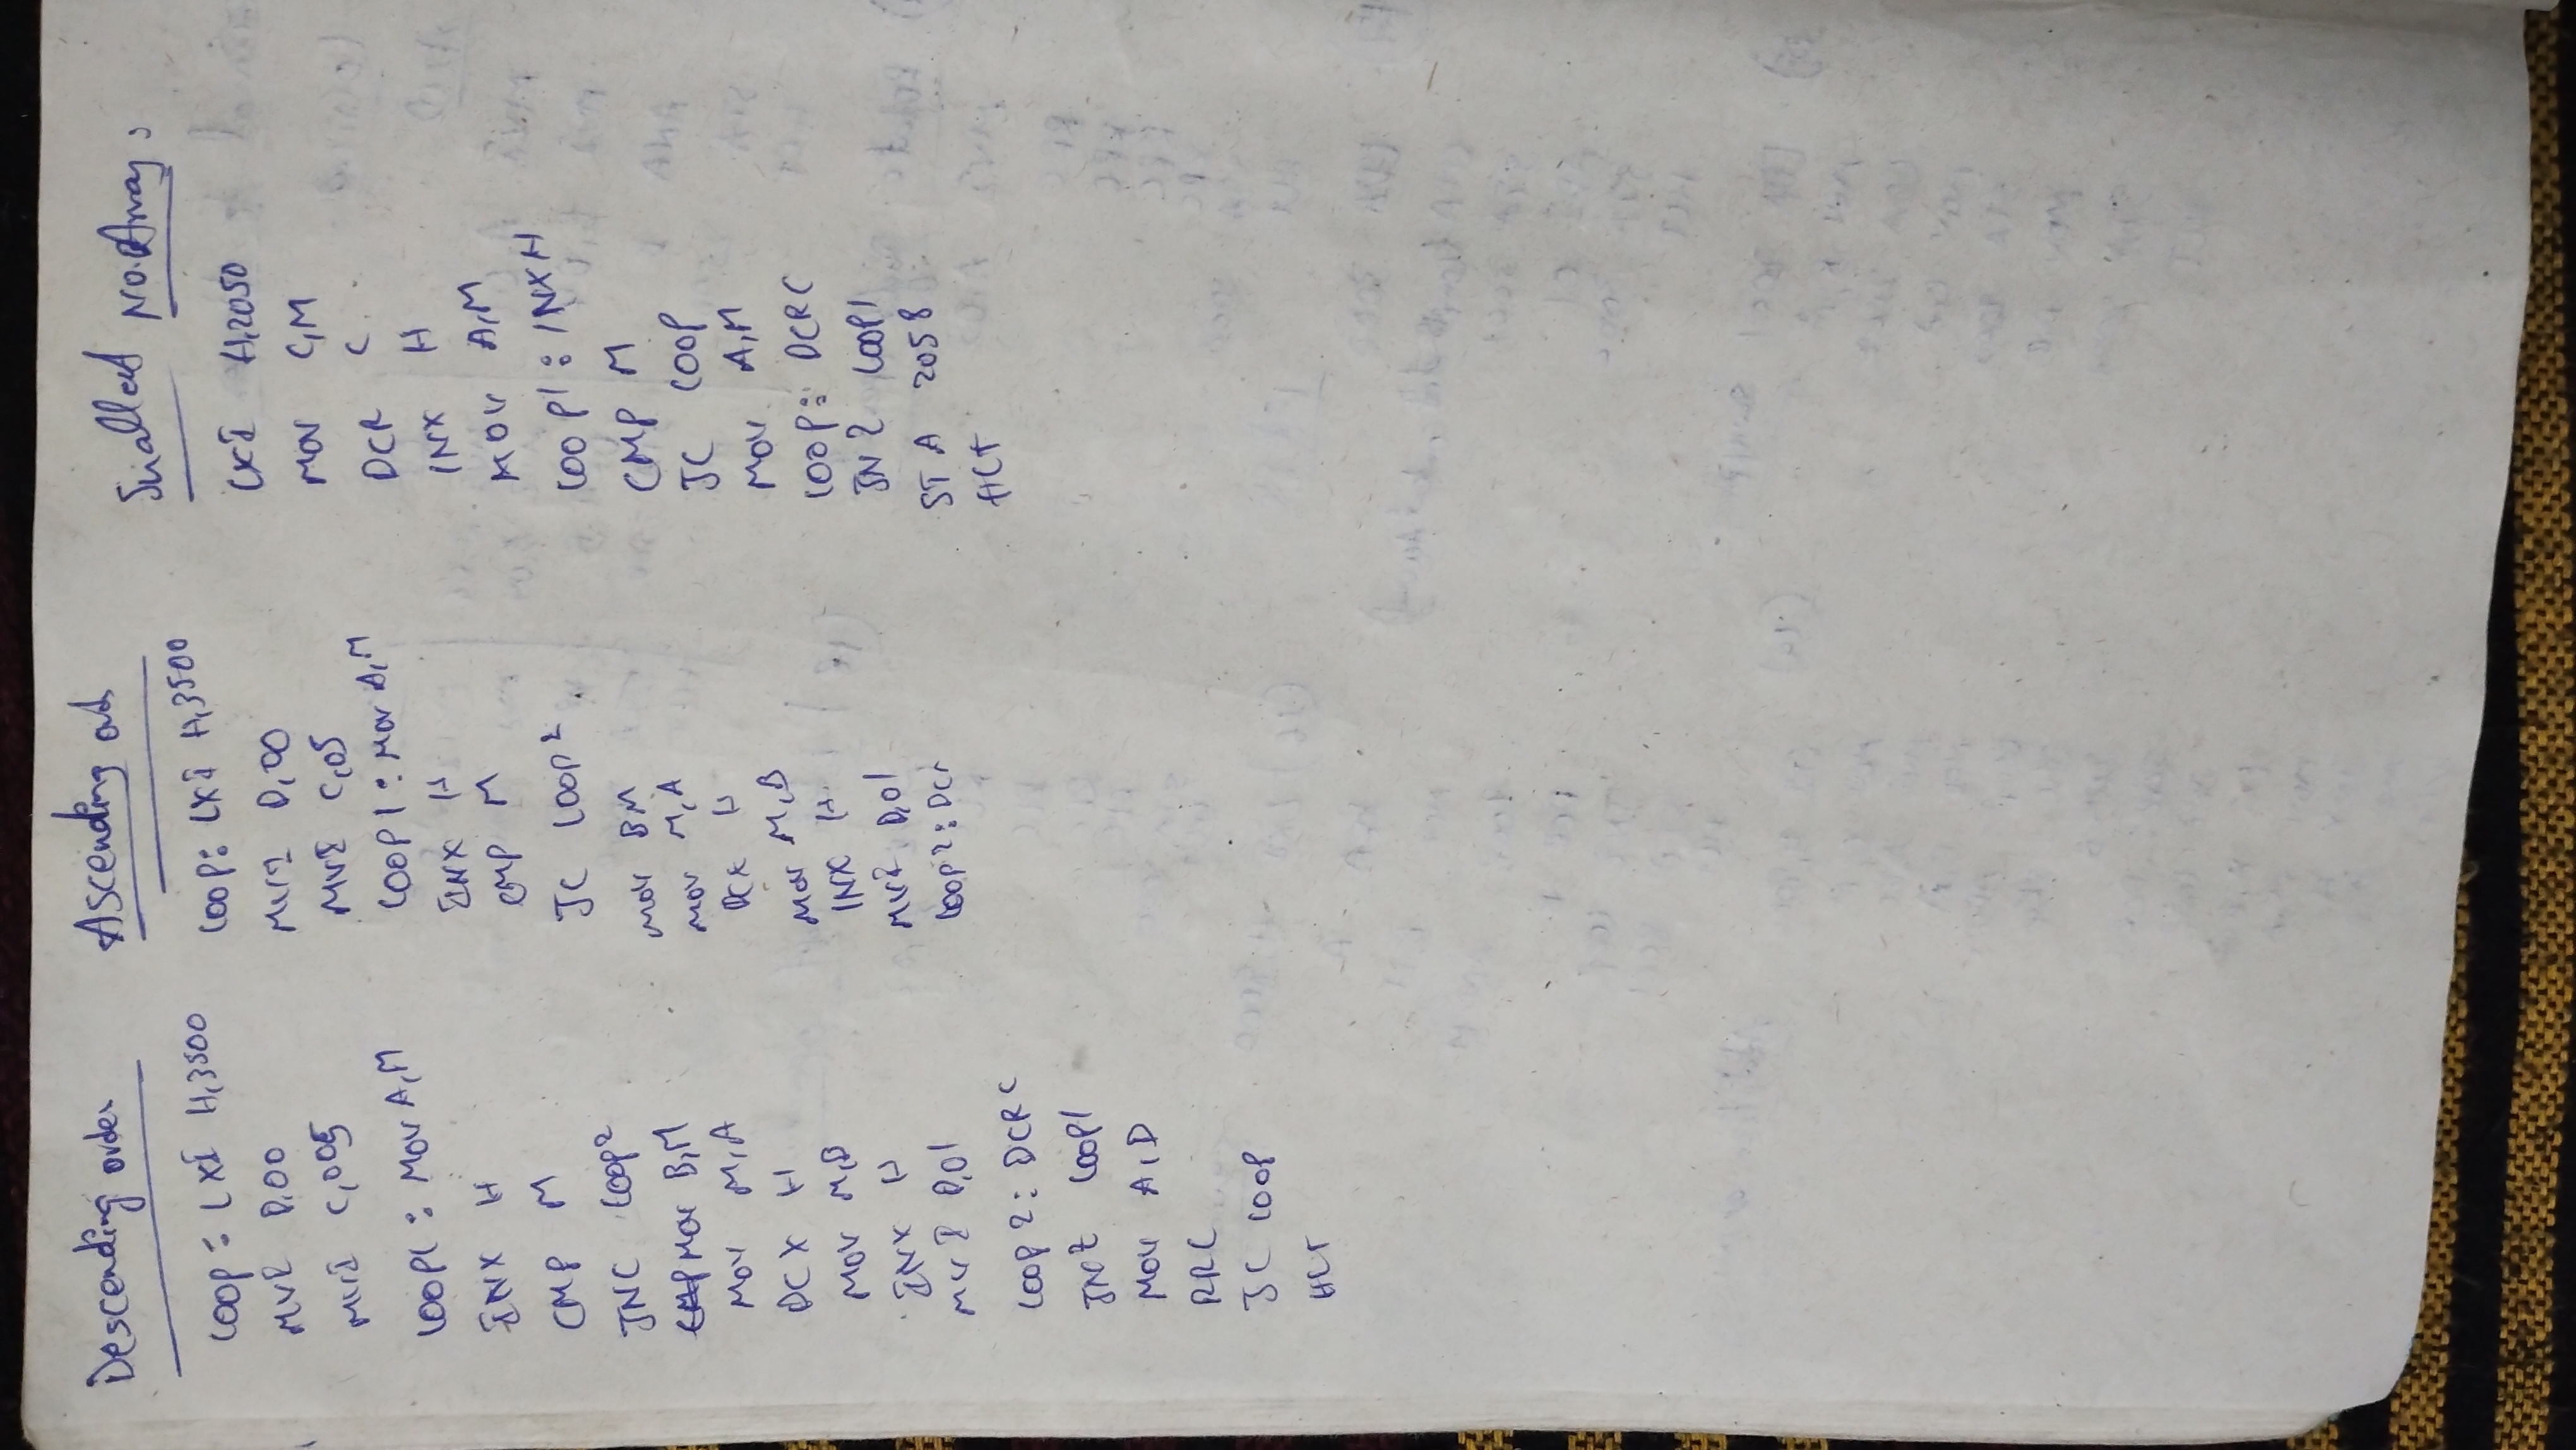 Descending order
LOOP : LXI H,3500
MVI D,00
MVI C,005
LOOP1 : MOV A,M
INX H
CMP M
JNC LOOP2
MOV B,M
MOV M,A
DCX H
MOV M,B
INX H
MVI D,01
LOOP2 : DCR C
JNZ LOOP1
MOV A,D
RRC
JC LOOP
HLT
Ascending
LOOP : LXI H,3500
MVI D,00
MVI C,05
LOOP1 : MOV A,M
INX H
CMP M
JC LOOP2
MOV B,M
MOV M,A
DCX H
MOV M,B
INX H
MVI D,01
LOOP2 : DCr
Smallest No. Array :
LXI H,2050
MOV C,M
DCR C
INX H
MOV A,M
LOOP1 : INX H
CMP M
JC LOOP
MOV A,M
LOOP : DCR C
JNZ LOOP1
STA 2058
HLT